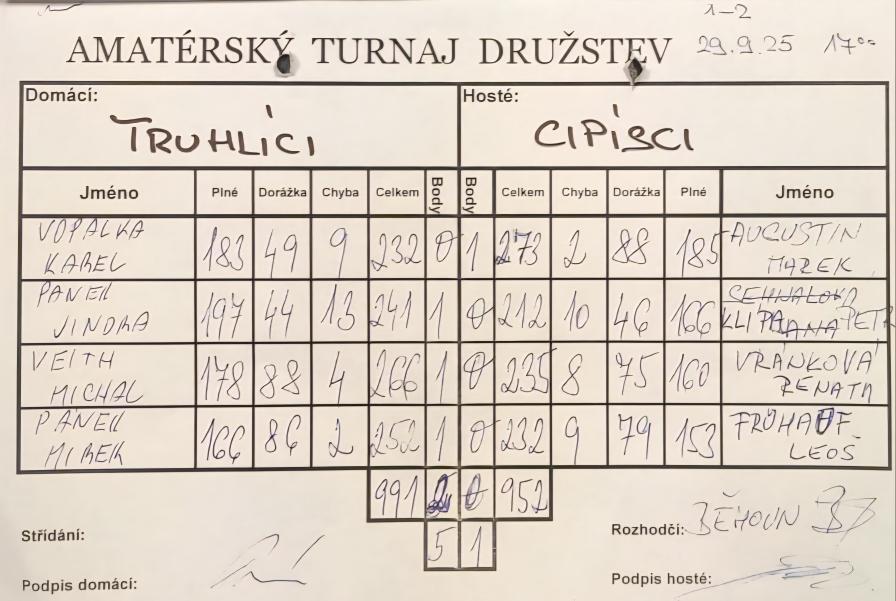 1-2
AMATÉRSKÝ TURNAJ DRUŽSTEV 29.9.25 17°°
Domácí: Hosté:
TRUHLÍCI CIPÍSCI
Jméno Plné Dorážka Chyba Celkem Body Body Celkem Chyba Dorážka Plné Jméno
VOPALKA AUGUSTIN
KAREL 183 49 9 232 0 1 273 2 88 185 MAREK
PANEK SEHNALOVA
JINDRA 197 44 13 241 1 0 212 10 46 166 KLIPA ANA PETR
VEITH VRÁNKOVÁ
MICHAL 178 88 4 266 1 0 235 8 75 160 RENATA
PANEK FRÜHAUF
MIREK 166 86 2 252 1 0 232 9 79 153 LEOŠ
991 2 0 952
Střídání: 5 1 Rozhodčí: BĚHOUN
Podpis domácí: Podpis hosté: